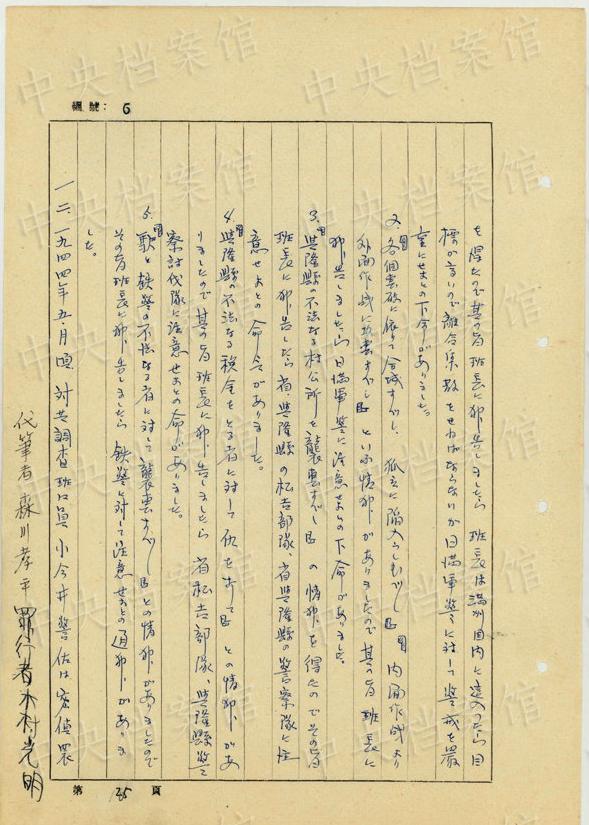 編號： 6
を得たので其の旨班長に卯告しましたら 班長は満洲国内に這入つたら目
標が高いので離合集散をせねばならないが日満軍警に対して警戒を厳
重にせよとの下命がありました。
2. 各個撃破に依りて全滅すべし、孤立に陥入らしむべし 内面作戦より
外面作戦に すべし といふ情卯がありましたので其の旨班長に
卯告しましたら日満軍警に注意せよとの下命がありました。
3. 興隆縣の不法なる村公所を襲撃すべし の情卯を得たのでその旨
班長に卯告したら省、興隆縣の松吉部隊、省興隆縣の警察隊に注
意せよとの命令がありました。
4. 興隆縣の不法なる税金をとる者に対して仇を との情卯があ
りましたので其の旨班長に卯告しましたら 省松吉部隊、興隆縣警
察討伐隊に注意せよとの命がありました。
5. 軍と鉄警の不法なる者に対して襲撃すべし との情卯がありましたので
その旨班長に卯告しましたら 鉄警に対して注意せよとの通卯がありま
した。
一二、一九四四年五月頃 対共調査班員 小今井警佐は 密偵
代筆者 森川孝平 罪行者 木村光明
第 135 頁
中央档案馆
中央档案馆
中央档案馆
中央档案馆
中央档案馆
中央档案馆